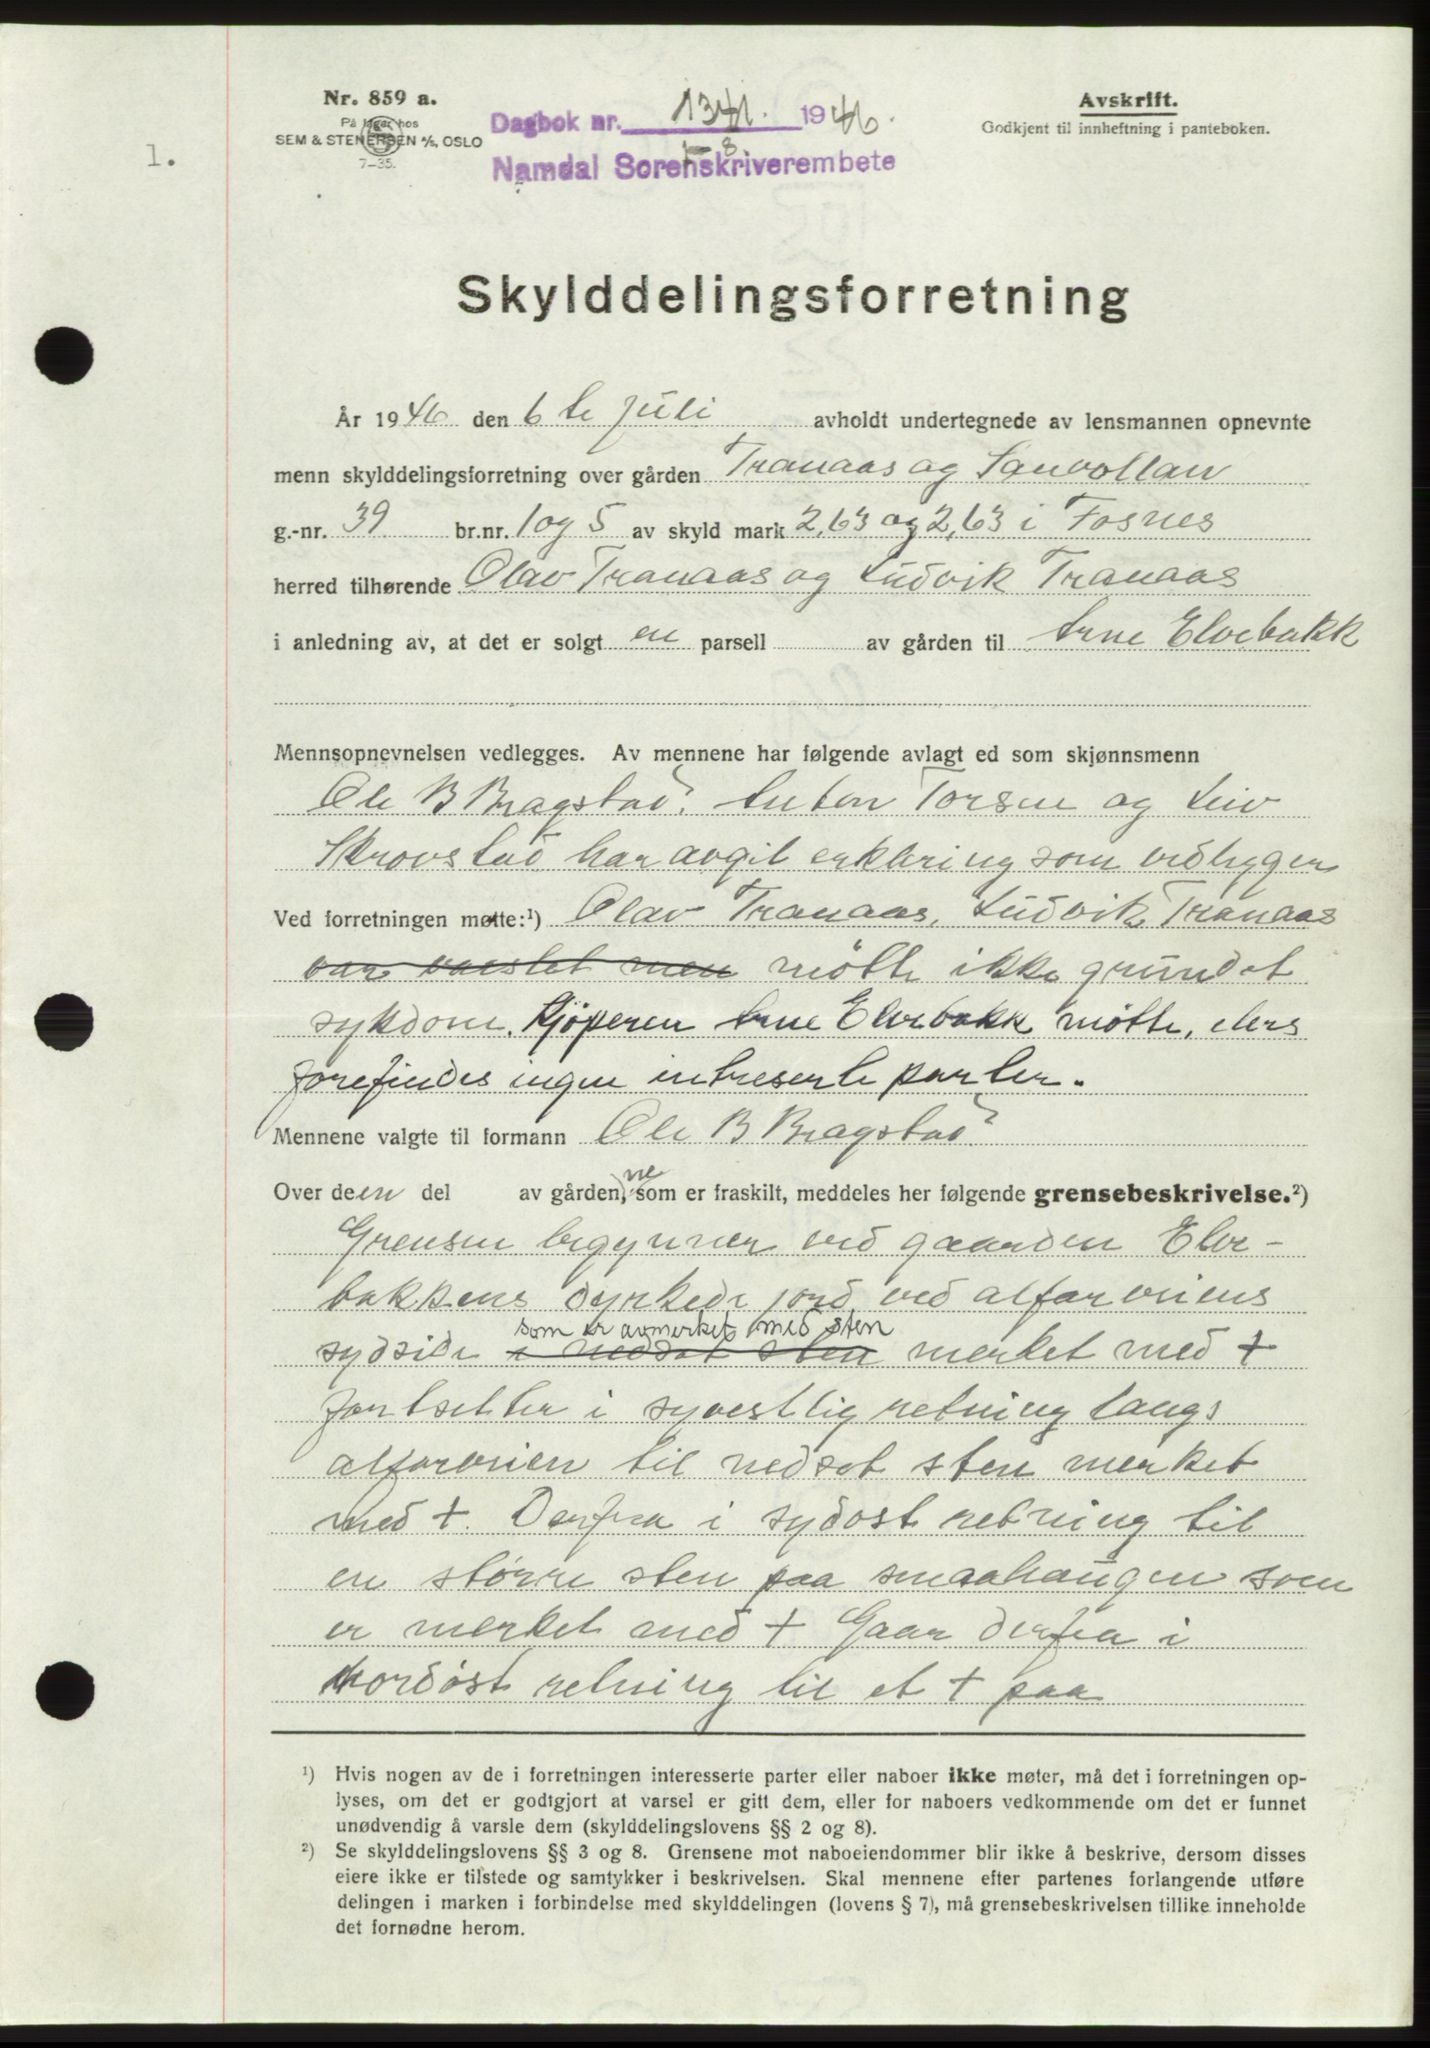 1.
Nr. 859 a.
På lager hos
SEM & STENERSEN A/S, OSLO
7—35.
Dagbok nr. 1341. 1946.
Namdal Sorenskriverembete
Avskrift.
Godkjent til innheftning i panteboken.
Skylddelingsforretning
År 1946 den 6 te juli avholdt undertegnede av lensmannen opnevnte
menn skylddelingsforretning over gården Tranaas og
g.-nr. 39 br.nr. 1 og 5 av skyld mark 2,63 og 2,63 i Fosnes
herred tilhørende Olav Tranaas og Ludvik Tranaas
i anledning av, at det er solgt en parsell av gården til Arne Elvebakk
Mennsopnevnelsen vedlegges. Av mennene har følgende avlagt ed som skjønnsmenn
Ole B Bragstad. Anton Torsen og Leiv
Skrovstad har avgit erklæring som vedlygger
Ved forretningen møtte:¹) Olav Tranaas, Ludvik Tranaas
var varslet men møtte ikke grundet
sykdom. Kjøperen Arne Elvebakk møtte, elers
forefindes ingen intreserte parter.
Mennene valgte til formann Ole B Bragstad
Over deen del av gården,ne som er fraskilt, meddeles her følgende grensebeskrivelse.²)
Grensen begynner ved gaarden Elve-
bakkens dyrkede jord ved alfarveiens
som er avmerket med sten
sydside i nedsat sten merket med +
fortsetter i syvestlig retning langs
alfarveien til nedsat sten merket
med +. Derfra i sydost retning til
en større sten paa smaahaugen som
er merket med + Gaar derfra i
nordøst retning til et + paa
¹) Hvis nogen av de i forretningen interesserte parter eller naboer ikke møter, må det i forretningen op-
lyses, om det er godtgjort at varsel er gitt dem, eller for naboers vedkommende om det er funnet
unødvendig å varsle dem (skylddelingslovens §§ 2 og 8).
²) Se skylddelingslovens §§ 3 og 8. Grensene mot naboeiendommer blir ikke å beskrive, dersom disses
eiere ikke er tilstede og samtykker i beskrivelsen. Skal mennene efter partenes forlangende utføre
delingen i marken i forbindelse med skylddelingen (lovens § 7), må grensebeskrivelsen tillike inneholde
det fornødne herom.